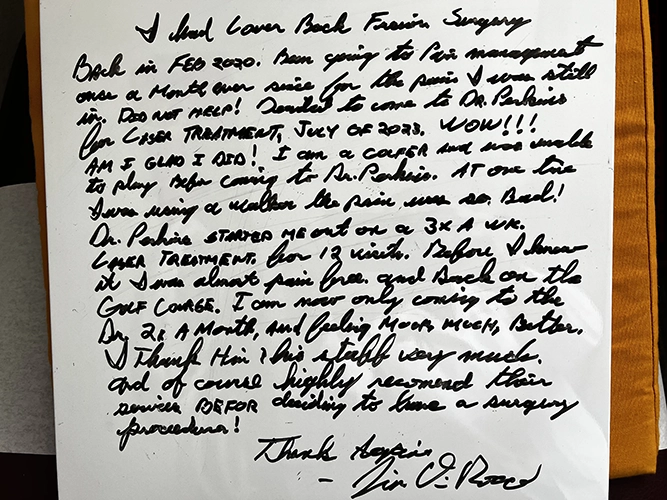 I had Lower Back Fusion Surgery
Back in FEB 2020. Been going to Pain management
once a Month ever since for the pain I was still
in. DID NOT HELP! Decided to come to DR. Perkins
for LASER TREATMENT, JULY OF 2023. WOW!!!
AM I GLAD I DID! I am a GOLFER and was unable
to play Befor coming to Dr. Perkins. AT one time
I was using a walker the pain was so Bad!
Dr. Perkins STARTED ME out on a 3x A WK.
LASER TREATMENT for 12 visits. Before I knew
it I was almost pain free and Back on the
GOLF COURSE. I am now only coming to the
Dr. 2x A Month, and feeling Much, Much, Better.
I Thank Him & his staff very much.
and of course highly recomend their
services BEFOR deciding to have a surgery
procedure!
Thank Again
- Jim